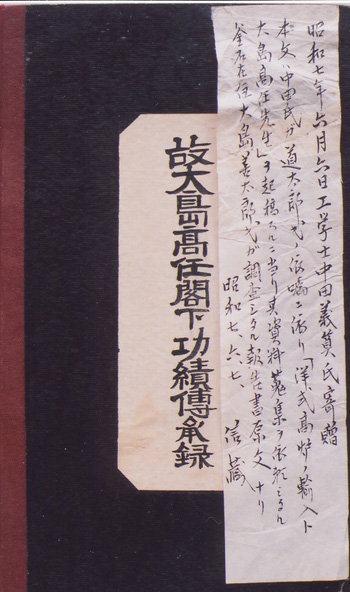 昭和七年六月六日工学士中田義算氏寄贈
本文ハ中田氏ガ道太郎氏ノ依嘱ニ依リ「洋式高炉ノ輸入ト
大島高任先生」ヲ起稿スルニ当リ其資料蒐集ヲ依頼シタル
釜石在住大島善太郎氏ガ調査シタル報告書原文ナリ
昭和七、六、七 信蔵
故大島高任閣下功績傳承録